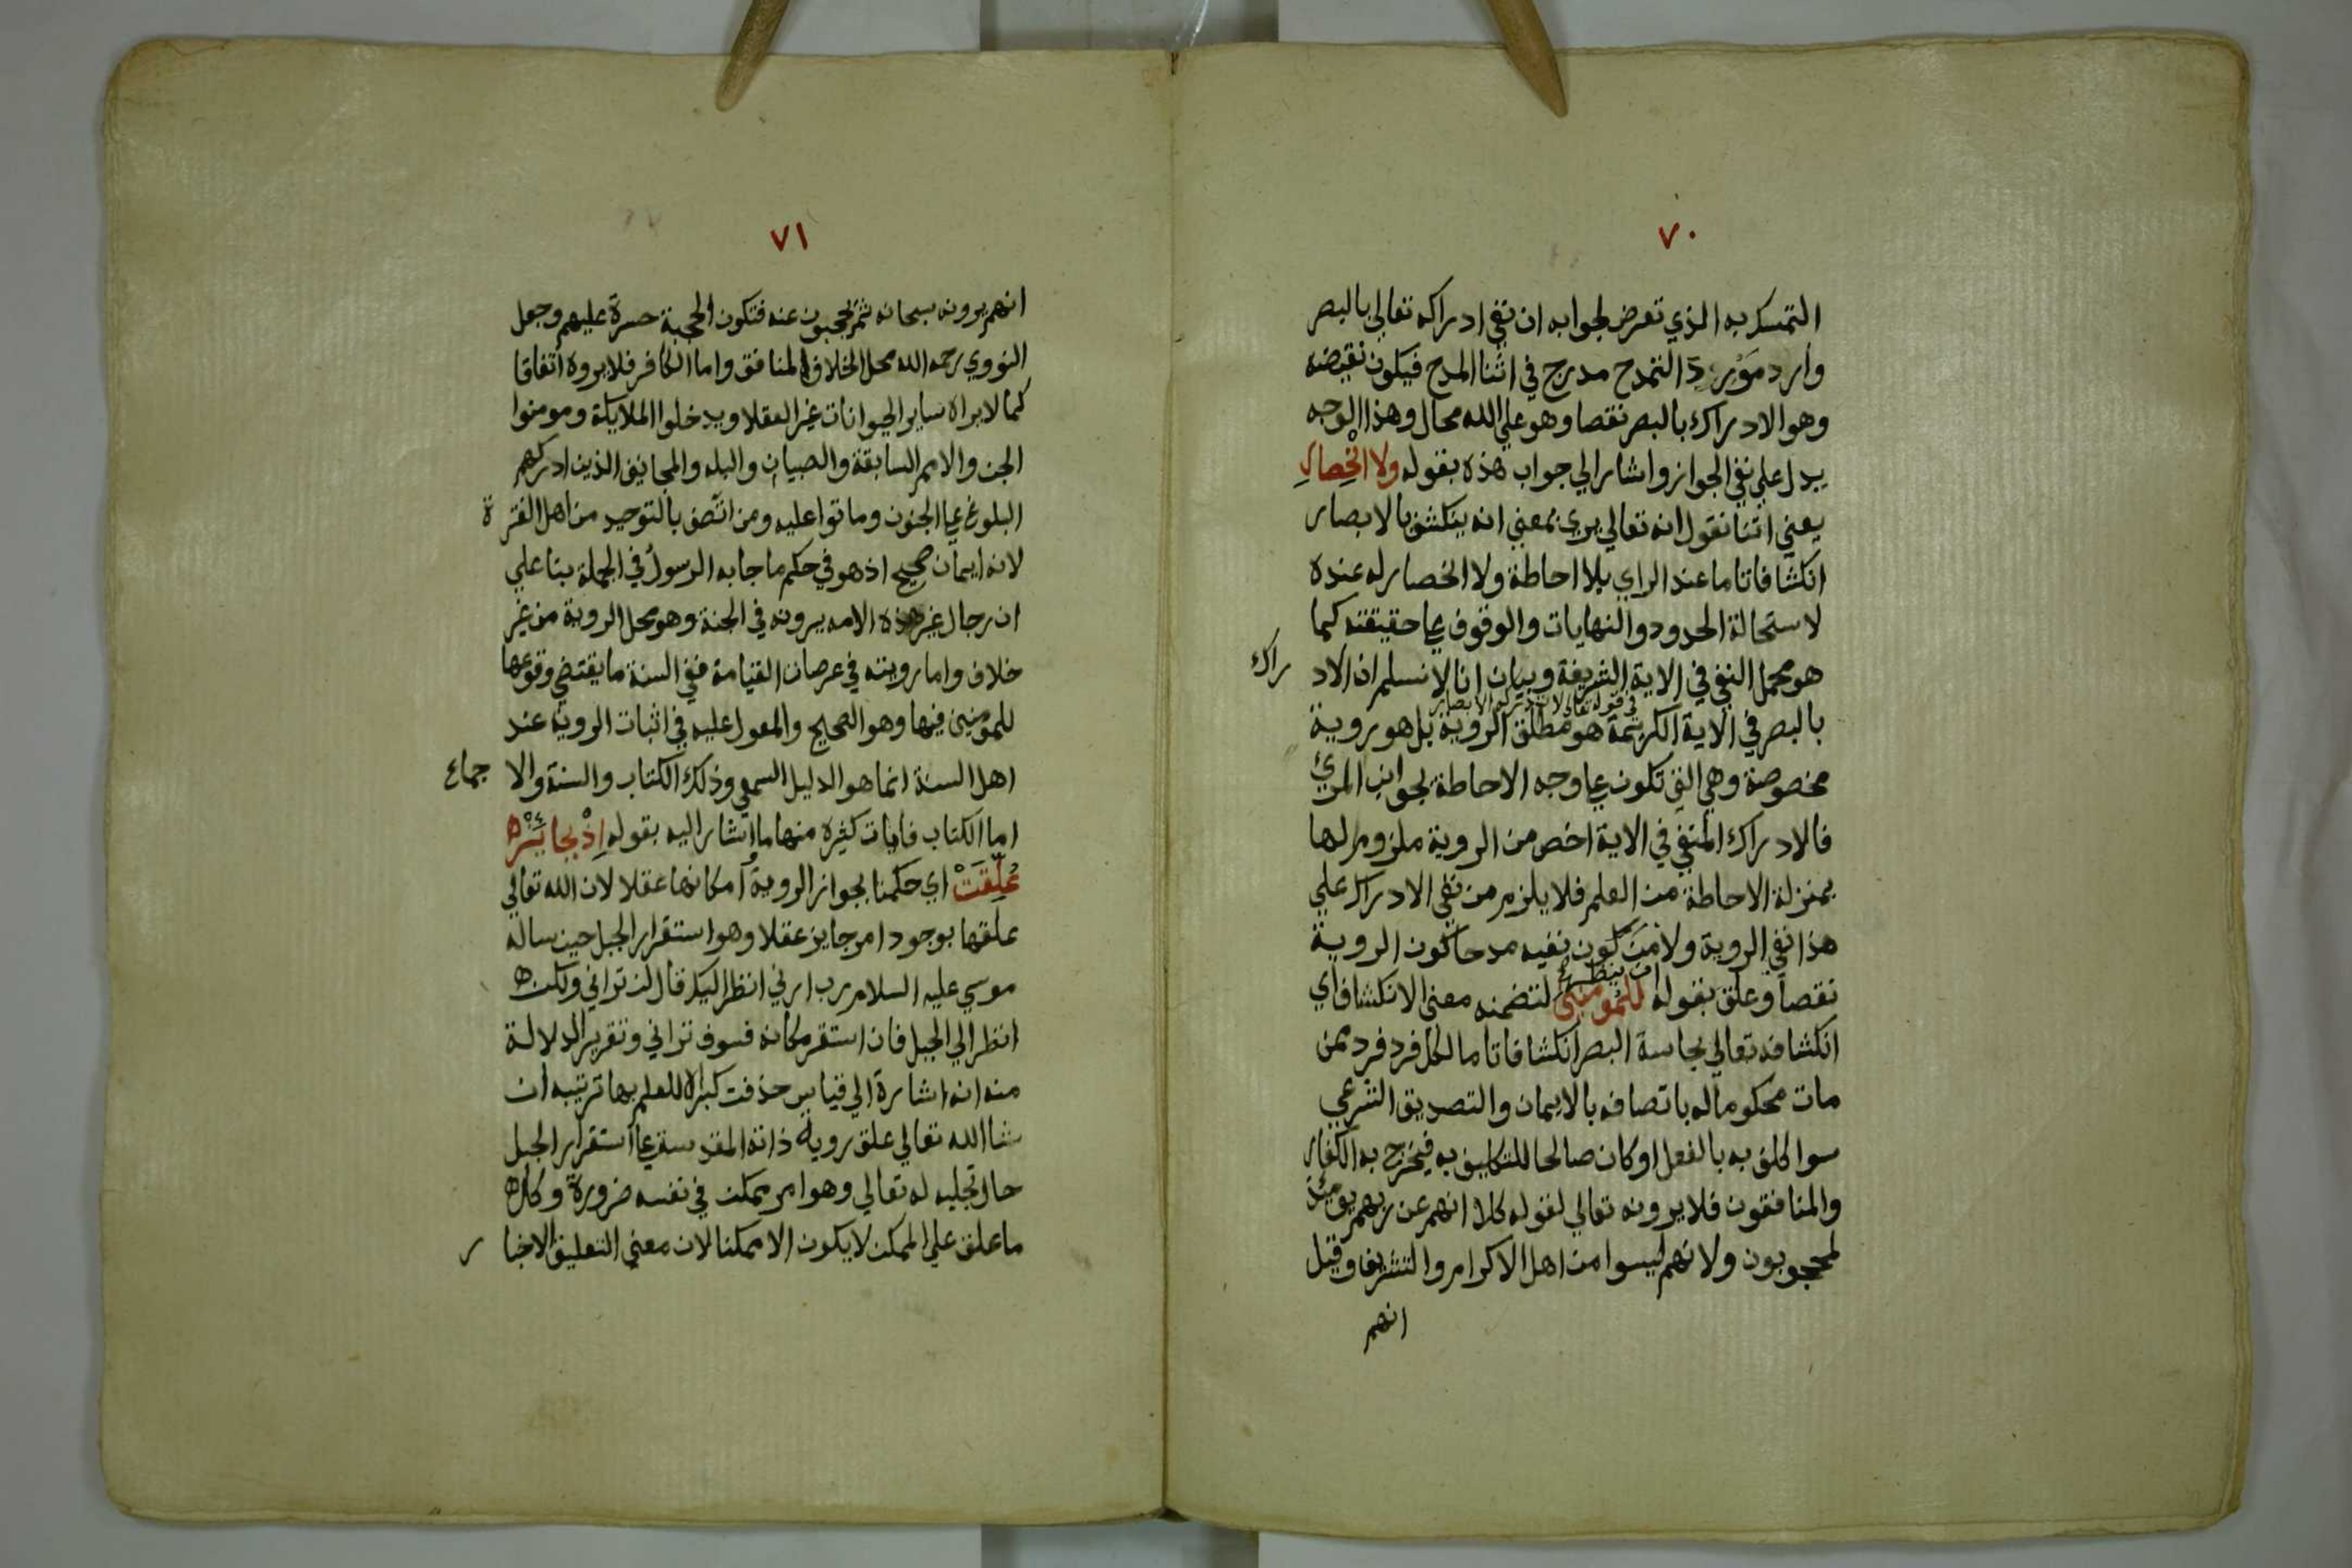 ٧٠
التمسك به الذي تعرض لجوابه ان نفي ادراكه تعالي بالبصر
وارد مَوْرِدَ التمدح مدرج في اثنا المدح فيكون نقيضه
وهو الادراك بالبصر نقصا وهو علي الله محال وهذا الوجه
يدل علي نفي الجواز واشار الي جواب هذه بقوله ولا انْحِصارِ
يعني اننا نقول انه تعالي يري بمعني انه ينكشف بالابصار
انكشافا تاما عند الراي بلا احاطة ولا انحصار له عنده
لاستحالة الحدود والنهايات والوقوف علي حقيقته كما
هو محمل النفي في الاية الشريفة وبيان انا لا نسلم ان الادراك
في قوله تعالي لا تدركه الابصار
بالبصر في الاية الكريمة هو مطلق الروية بل هو روية
مخصوصة وهي التي تكون علي وجه الاحاطة بجوانب المرئ
فالادراك المنفي في الاية اخص من الروية ملزوم لها
بمنزلة الاحاطة من العلم فلا يلزم من نفي الادراك علي
هذا نفي الروية ولا من كون نفيه مدحا كون الروية
نقصا وعلق بقوله ان ينظر للمُومنين لتضمنه معني الانكشاف اي
انكشافه تعالي بحاسة البصر انكشافا تاما لكل فرد فرد ممن
مات محكوما له باتصافه بالايمان والتصديق الشرعي
سوا كلف به بالفعل او كان صالحا للتكليف به فيخرج به الكفار
والمنافقون فلا يرونه تعالي لقوله كلا انهم عن ربهم يومئذ
لمحجوبون ولانهم ليسوا من اهل الاكرام والتشريف وقيل
انهم
٧١
انهم يرونه سبحانه ثم يحجبون عنه فتكون الحجبة حسرة عليهم وجعل
النووي رحمه الله محل الخلاف المنافق واما الكافر فلا يروه اتفاقا
كما لا يراه ساير الحيوانات غير العقلا ويدخلوا الملايكة ومومنوا
الجن والامم السابقة والصبيان والبله والمجانين الذين ادركهم
البلوغ علي الجنون وماتوا عليه ومن اتصف بالتوحيد من اهل الفترة
لانه ايمان صحيح اذ هو في حكم ما جا به الرسول في الجملة بنا علي
ان رجال غير هذه الامه يرونه في الجنة وهو محل الروية من غير
خلاف واما رويته في عرصات القيامة ففي السنة ما يقتضي وقوعها
للمومنين فيها وهو الصحيح والمعول عليه في اثبات الروية عند
اهل السنة انما هو الدليل السمعي وذلك الكتاب والسنة والاجماع
اما الكتاب فايات كثيرة منها ما اشار اليه بقوله اِذْ بجائزْ
عُلِّقَتْ اي حكمنا بجواز الروية امكانها عقلا لان الله تعالي
علقها بوجود امر جايز عقلا وهو استقرار الجبل حين ساله
موسي عليه السلام رب ارني انظر اليك قال لن تراني ولكن
انظر الي الجبل فان استقر مكانه فسوف تراني وتقرير الدلالة
منه انه اشارة الي قياس حذفت كبراه للعلم بها ترتيبه ان
شا الله تعالي علق روية ذاته المقدسة علي استقرار الجبل
حال تجليه له تعالي وهو امر ممكن في نفسه ضرورة وكل
ما علق علي الممكن لا يكون الا ممكنا لان معني التعليق الاخبار